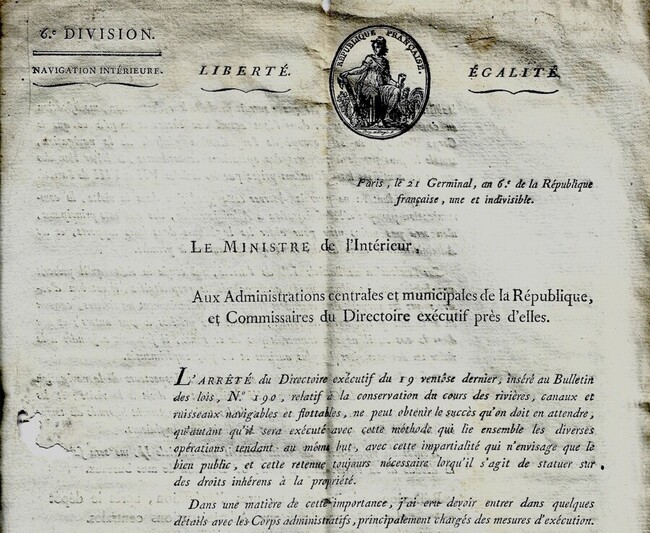 6.e DIVISION.
NAVIGATION INTÉRIEURE.
LIBERTÉ.
RÉPUBLIQUE FRANÇAISE.
ÉGALITÉ
Paris, le 21 Germinal, an 6.e de la République
française, une et indivisible.
LE MINISTRE de l'Intérieur,
Aux Administrations centrales et municipales de la République,
et Commissaires du Directoire exécutif près d'elles.
L'ARRÊTÉ du Directoire exécutif du 19 ventôse dernier, inséré au Bulletin
des lois, N.o 190, relatif à la conservation du cours des rivières, canaux et
ruisseaux navigables et flottables, ne peut obtenir le succès qu'on doit en attendre,
qu'autant qu'il sera exécuté avec cette méthode qui lie ensemble les diverses
opérations tendant au même but, avec cette impartialité qui n'envisage que le
bien public, et cette retenue toujours nécessaire lorqu'il s'agit de statuer sur
des droits inhérens à la propriété.
Dans une matière de cette importance, j'ai cru devoir entrer dans quelques
détails avec les Corps administratifs, principalement chargés des mesures d'exécution.